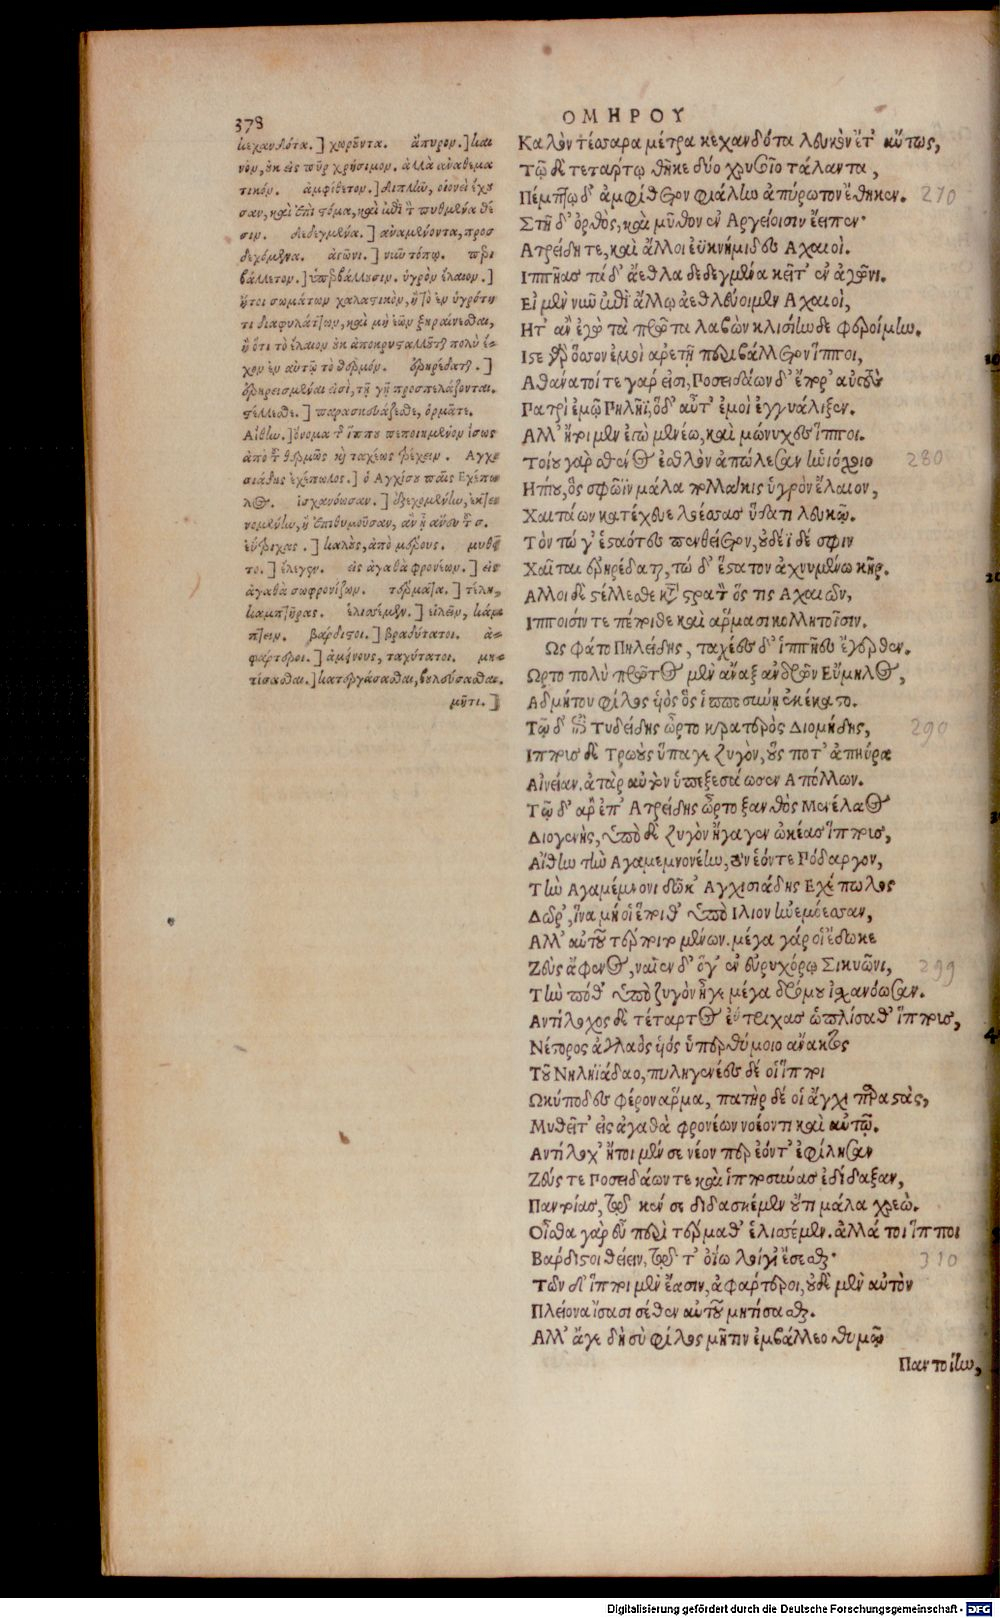 378
ΟΜΗΡΟΥ
κεχανδότα.] χωρῦντα. ἄπυρον.] και
νὸν, ὀκ εἰς πῦρ χρήσιμον. ἀλλὰ ἀναθεμα
τικόν. ἀμφίθετον.] διπλῶ, οἱονεὶ ἐχου
σαν, καὶ ἐπὶ στόμα, καὶ ἐπὶ τ πυθμένα θέ
σιν. δεδεγμένα.] ἀναμένοντα, προσ
δεχόμενα. ἀγῶνι.] νιῦ τόπῳ. περι
βάλλετον.] ὑπερβάλλουσιν. ὑγρὸν ἔλαιον.]
ἤτοι σωμάτων χαλαστικὸν, ἢ τὸ ἐν ὑγρότη
τι διαφυλάττον, καὶ μὴ ἐῶν ξηραίνεσθαι,
ἢ ὅτι τὸ ἔλαιον οὐκ ἀποκρυσταλλοῦται πολὺ ἔ-
χον ἐν αὐτῷ τὸ θερμόν. ἐρηρέδαται.]
ἐρηρεισμέναι εἰσὶ, τῇ γῇ προσπελάζονται.
στέλλεσθε.] παρασκευάζεσθε, ὁρμᾶτε.
Αἴθην.] ὄνομα τοῦ ἵππου πεποιημένον ἴσως
ἀπὸ τ θερμῶς κὶ ταχέως τρέχειν. Αγχι
σιάδης ἐχέπωλος.] ὁ Αγχίσου παῖς Εχέπω
λος. ἰσχανόωσαν.] ὀρεγομένην, ἐκτει
νομένην, ἢ ἐπιθυμοῦσαν, αν ᾖ ἄνευ τ σ.
ἐΰτριχας.] καλοὺς, ἀπὸ μέρους. μυθεῖ
το.] ἔλεγεν. εἰς ἀγαθὰ φρονέων.] εἰς
ἀγαθὰ σωφρονίζων. τέρματα.] τέλη,
καμπτῆρας. ἑλισσέμεν.] εἱλεῖν, κάμ-
πτειν. βάρδιστοι.] βραδύτατοι. ἀ-
φάρτεροι.] ἀμείνους, ταχύτατοι. μη-
τίσασθαι.] κατεργάσασθαι, βουλεύσασθαι.
μῆτι.]
Καλὸν τέσσαρα μέτρα κεχανδότα λευκὸν ἔτ' αὔτως,
Τῷ δὲ τετάρτῳ θῆκε δύο χρυσοῖο τάλαντα,
Πέμπτῳ δ' ἀμφίθετον φιάλην ἀπύρωτον ἔθηκεν. 270
Στῆ δ' ὀρθὸς, καὶ μῦθον ἐν Αργείοισιν ἔειπεν·
Ατρείδη τε, καὶ ἄλλοι ἐϋκνήμιδες Αχαιοὶ.
Ιππῆας τάδ' ἄεθλα δεδεγμένα κεῖτ' ἐν ἀγῶνι.
Εἰ μὲν νῦν ἐπὶ ἄλλῳ ἀεθλεύοιμεν Αχαιοὶ,
Ητ' ἂν ἐγὼ τὰ πρῶτα λαβὼν κλισίην δε φεροίμην.
Ιστε γὰρ ὅσσον ἐμοὶ ἀρετῇ περιβάλλετον ἵπποι,
Αθάνατοί τε γάρ εἰσι, Ποσειδάων δ' ἔπορ' αὐτοὺς
Πατρὶ ἐμῷ Πηλῆϊ, ὅδ' αὖτ' ἐμοὶ ἐγγυάλιξεν.
Αλλ' ἤτοι μὲν ἐγὼ μενέω, καὶ μώνυχες ἵπποι.
Τοίου γὰρ σθένος ἐσθλὸν ἀπώλεσαν ἡνιόχοιο 280
Ηπίου, ὅς σφῶϊν μάλα πολλάκις ὑγρὸν ἔλαιον,
Χαιτάων κατέχευε λοέσσας ὕδατι λευκῷ.
Τὸν τώ γ' ἑσταότες πενθείετον, οὔδεϊ δέ σφιν
Χαῖται ἐρηρέδαται, τὼ δ' ἕστατον ἀχνυμένω κῆρ.
Αλλοι δὲ στέλλεσθε κατὰ στρατὸν ὅς τις Αχαιῶν,
Ιπποισίν τε πέποιθε καὶ ἅρμασι κολλητοῖσιν.
Ως φάτο Πηλείδης, ταχέες δ' ἱππῆες ἔγερθεν.
Ωρτο πολὺ πρῶτος μὲν ἄναξ ἀνδρῶν Εὔμηλος,
Αδμήτου φίλος υἱὸς ὃς ἱπποσύνῃ ἐκέκαστο.
Τῷ δ' ἐπὶ Τυδείδης ὦρτο κρατερὸς Διομήδης, 290
Ιππους δὲ Τρωοὺς ὕπαγε ζυγὸν, οὕς ποτ' ἀπηύρα
Αἰνείαν. ἀτὰρ αὐτὸν ὑπεξεσάωσεν Απόλλων.
Τῷ δ' ἄρ' ἐπ' Ατρείδης ὦρτο ξανθὸς Μενέλαος
Διογενὴς, ὑπὸ δὲ ζυγὸν ἤγαγεν ὠκέας ἵππους,
Αἴθην τὴν Αγαμεμνονέην, τὸν ἑόντε Πόδαργον,
Τὴν Αγαμέμνονι δῶκ' Αγχισιάδης Εχέπωλος
Δῶρ', ἵνα μή οἱ ἕποιθ' ὑπὸ Ιλιον ἠνεμόεσσαν,
Αλλ' αὐτοῦ τέρποιτο μένων. μέγα γάρ οἱ ἔδωκε
Ζεὺς ἄφενος, ναῖεν δ' ὅγ' ἐν εὐρυχόρῳ Σικυῶνι, 299
Τὴν τόθ' ὑπὸ ζυγὸν ἦγε μέγα δρόμου ἰσχανόωσαν.
Αντίλοχος δὲ τέταρτος ἐΰτριχας ὡπλίσαθ' ἵππους,
Νέστορος ἀγλαὸς υἱός ὑπερθύμοιο ἄνακτος
Τοῦ Νηληϊάδαο, πυληγενέες δέ οἱ ἵπποι
Ωκύποδες φέρον ἅρμα, πατὴρ δέ οἱ ἄγχι παραστὰς,
Μυθεῖτ' εἰς ἀγαθὰ φρονέων νοέοντι καὶ αὐτῷ.
Αντίλοχ' ἤτοι μέν σε νέον περ ἐόντ' ἐφίλησαν
Ζεύς τε Ποσειδάων τε καὶ ἱπποσύνας ἐδίδαξαν,
Παντοίας, τῷ καί σε διδασκέμεν οὔτι μάλα χρεώ.
Οἶσθα γὰρ εὖ περὶ τέρμαθ' ἑλισσέμεν. ἀλλά τοι ἵπποι
Βάρδιστοι θείειν, τῷ τ' ὀΐω λοίγι' ἔσεσθαι· 310
Τῶν δ' ἵπποι μὲν ἔασιν, ἀφάρτεροι, οὐδὲ μὲν αὐτὸν
Πλείονα ἴσασι σέθεν αὐτοῦ μητίσασθαι.
Αλλ' ἄγε δὴ σὺ φίλος μῆτιν ἐμβάλλεο θυμῷ
Παντοίην,
Digitalisierung gefördert durch die Deutsche Forschungsgemeinschaft - DFG